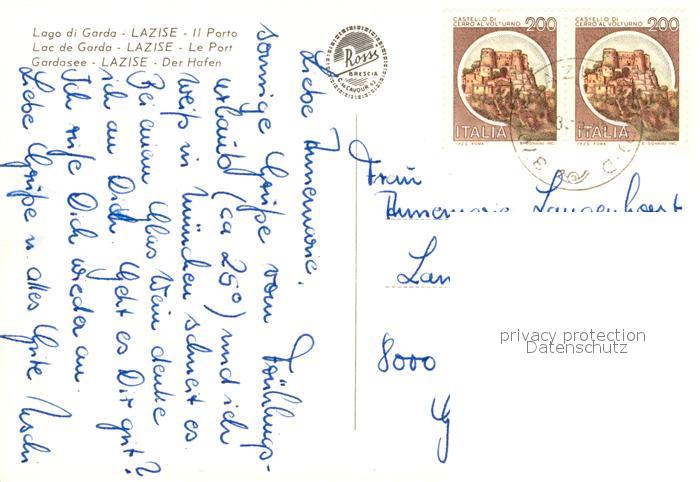 Lago di Garda - LAZISE - Il Porto
Lac de Garda - LAZISE - Le Port
Gardasee - LAZISE - Der Hafen
Rossi
BRESCIA
C. CAVOUR 42
CASTELLO DI
CERRO AL VOLTURNO 200
ITALIA
I.P.Z.S. ROMA E. DONNINI INC.
CASTELLO DI
CERRO AL VOLTURNO 200
ITALIA
I.P.Z.S. ROMA E. DONNINI INC.
Liebe Annemarie,
sonnige Grüße vom Frühlings-
urlaub (ca 25°) und ich
weiß in München schneit es.
Bei einem Glas Wein denke
ich an Dich. Geht es Dir gut?
Ich rufe Dich wieder an.
Liebe Grüße u. alles Gute Uschi
Frau
Annemarie Langenhorst
Lan
8000
privacy protection
Datenschutz